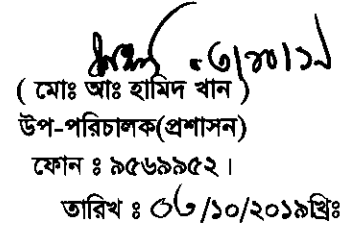 ( মোঃ আঃ হামিদ খান )
উপ-পরিচালক(প্রশাসন)
ফোন ঃ ৯৫৬৯৯৫২ ।
তারিখ ঃ ০৩/১০/২০১৯খ্রিঃ